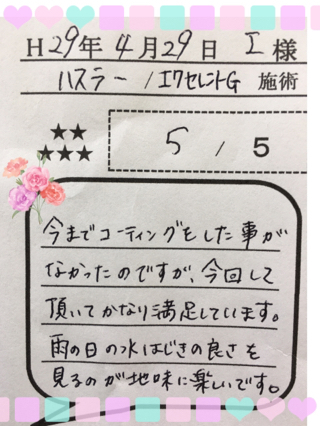 H29年4月29日 I様
ハスラー / エクセレントG 施術
★★
★★★
5 / 5
今までコーティングをした事が
なかったのですが、今回して
頂いてかなり満足しています。
雨の日の水はじきの良さを
見るのが地味に楽しいです。